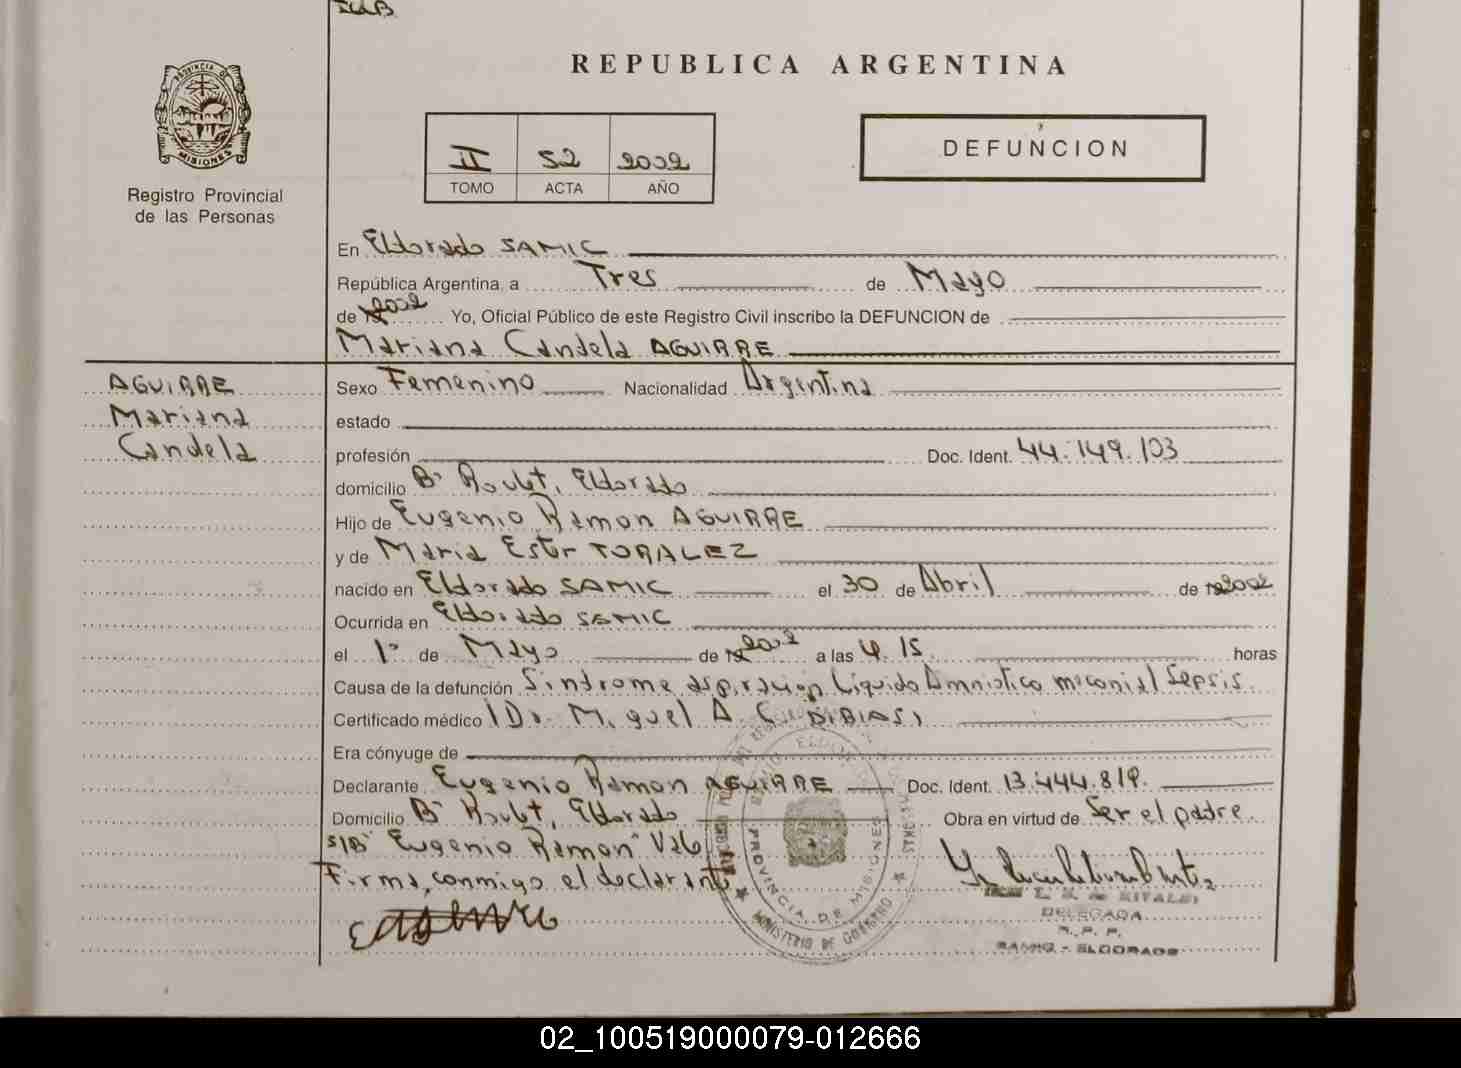 REPUBLICA ARGENTINA
PROVINCIA DE
MISIONES
Registro Provincial
de las Personas
II 52 2002
TOMO ACTA AÑO
DEFUNCION
En Eldorado SAMIC
República Argentina, a Tres de Mayo
de 2002 Yo, Oficial Público de este Registro Civil inscribo la DEFUNCION de
Mariana Candela AGUIRRE
AGUIRRE
Mariana
Candela
Sexo Femenino Nacionalidad Argentina
estado
profesión Doc. Ident. 44.149.103
domicilio B° Roulet, Eldorado
Hijo de Eugenio Ramon AGUIRRE
y de Maria Ester TORALEZ
nacido en Eldorado SAMIC el 30 de Abril de 2002
Ocurrida en Eldorado SAMIC
el 1° de Mayo de 2002 a las 4.15 horas
Causa de la defunción Sindrome aspiracion Liquido Amniotico meconial Sepsis
Certificado médico (Dr. Miguel A. C. DIBIASI)
Era cónyuge de
Declarante Eugenio Ramon AGUIRRE Doc. Ident. 13.444.819
Domicilio B° Roulet, Eldorado Obra en virtud de Ser el padre
S/B "Eugenio Ramon" Vale
Firma, conmigo el declarante
PROVINCIA DE MISIONES
MINISTERIO DE GOBIERNO
DELEGADA
R. P. P.
SAMIC - ELDORADO
02_100519000079-012666